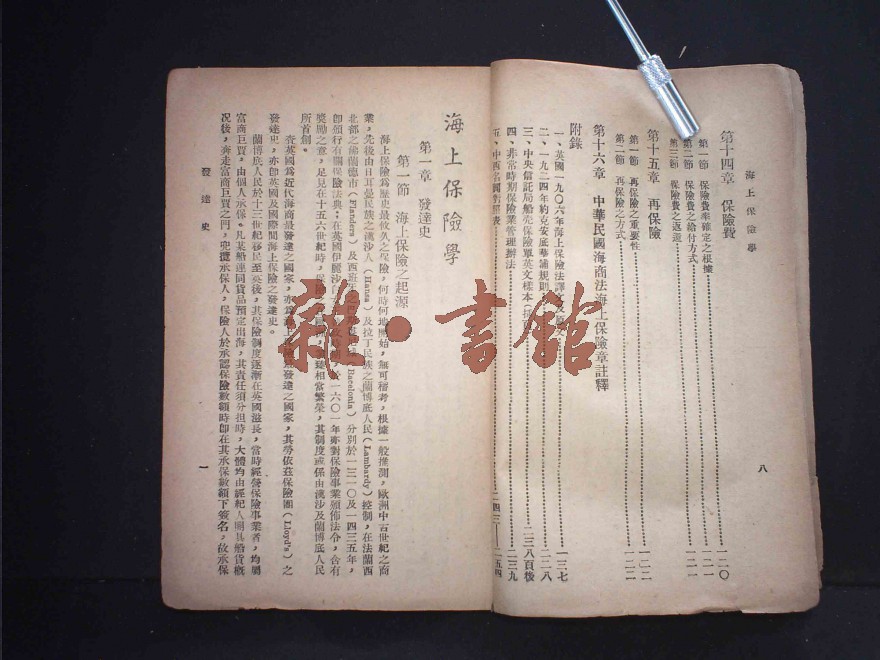 海上保險學
八
第十四章 保險費
第一節 保險費率確定之根據 一二〇
第二節 保險費之給付方式 一二一
第三節 保險費之返還 一二一
第十五章 再保險
第一節 再保險之重要性 一二二
第二節 再保險之方式 一二二
第十六章 中華民國海商法海上保險章註釋
附錄
一、英國一九〇六年海上保險法譯文及原文 一三七
二、一九二四年約克安底華浦規則 二二八
三、中央信託局船壳保險單英文樣本 二三八頁後
四、非常時期保險業管理辦法 二三九
五、中西名詞對照表 二四三—二五四
海上保險學
第一章 發達史
第一節 海上保險之起源
海上保險為歷史最攸久之保險，何時何地開始，無可稽考，根據一般推測，歐洲中古世紀之商
業，先後由日耳曼民族之漢沙人（Hansa）及拉丁民族之蘭博底人民（Lambardy）控制，在法蘭西
北部之佛蘭德市（Flanders）及西班牙之（Bacelonia）分別於一三一〇及一四三五年，
即頒行有關保險法典；在英國伊麗沙白一六〇一年亦對保險事業頒佈法令，含有
獎勵之意，足見在十五六世紀時，保險相當繁榮，其制度或係由漢沙及蘭博底人民
所首創。
查英國為近代海商最發達之國家，亦為海上保險最發達之國家，其勞依茲保險團（Lloyd's）之
發達史，亦即英國及國際間海上保險之發達史。
蘭博底人民於十三世紀移民至英後，其保險制度逐漸在英國滋長，當時經營保險事業者，均屬
富商巨賈，由個人承保。凡某船連同貨品預定出海，其責任須分担時，大體均由經紀人開具船貨概
況後，奔走富商巨賈之門，兜攬承保人，保險人於承認保險數額時即在其承保數額下簽名，故承保
發達史
一
雜·書館